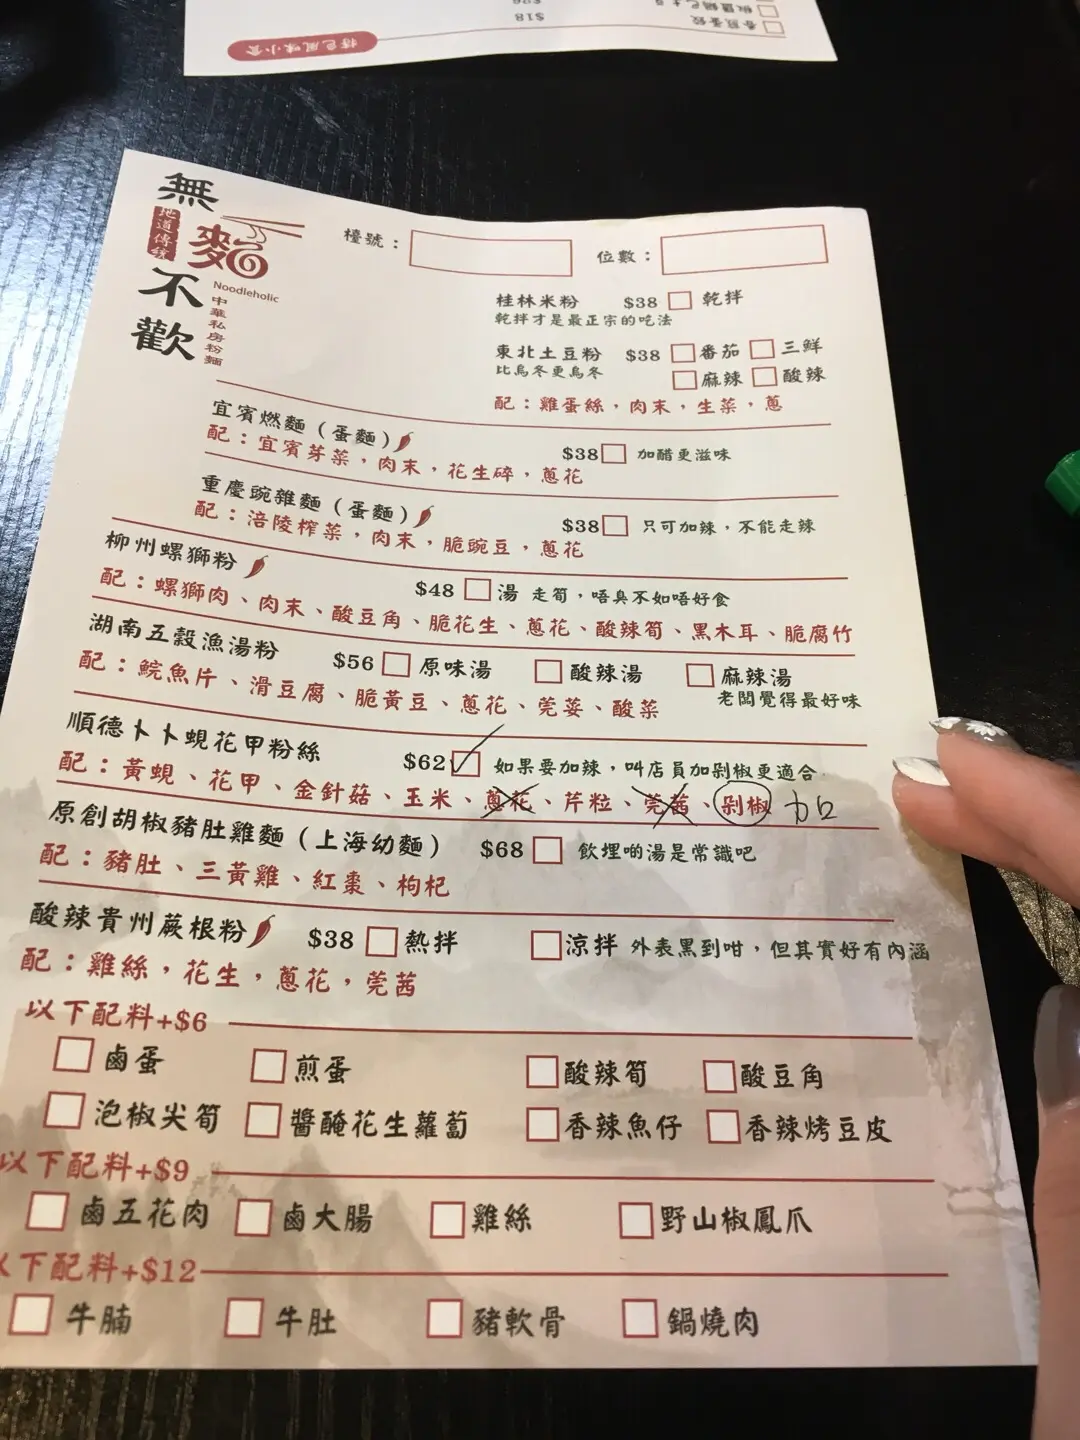 $18
特色風味小食
無麵不歡
地道傳統
Noodleholic
中華私房粉麵
檯號：
位數：
桂林米粉 $38 乾拌
乾拌才是最正宗的吃法
東北土豆粉 $38 番茄 三鮮
比烏冬更烏冬 麻辣 酸辣
配：雞蛋絲，肉末，生菜，蔥
宜賓燃麵（蛋麵） $38 加醋更滋味
配：宜賓芽菜，肉末，花生碎，蔥花
重慶豌雜麵（蛋麵） $38 只可加辣，不能走辣
配：涪陵榨菜，肉末，脆豌豆，蔥花
柳州螺獅粉 $48 湯 走筍，唔臭不如唔好食
配：螺獅肉、肉末、酸豆角、脆花生、蔥花、酸辣筍、黑木耳、脆腐竹
湖南五穀漁湯粉 $56 原味湯 酸辣湯 麻辣湯
老闆覺得最好味
配：鯇魚片、滑豆腐、脆黃豆、蔥花、芫荽、酸菜
順德卜卜蜆花甲粉絲 $62 如果要加辣，叫店員加剁椒更適合
配：黃蜆、花甲、金針菇、玉米、蔥花、芹粒、芫茜、剁椒 加
原創胡椒豬肚雞麵（上海幼麵） $68 飲埋啲湯是常識吧
配：豬肚、三黃雞、紅棗、枸杞
酸辣貴州蕨根粉 $38 熱拌 涼拌 外表黑到咁，但其實好有內涵
配：雞絲，花生，蔥花，芫茜
以下配料+$6
鹵蛋 煎蛋 酸辣筍 酸豆角
泡椒尖筍 醬醃花生蘿蔔 香辣魚仔 香辣烤豆皮
以下配料+$9
鹵五花肉 鹵大腸 雞絲 野山椒鳳爪
以下配料+$12
牛腩 牛肚 豬軟骨 鍋燒肉